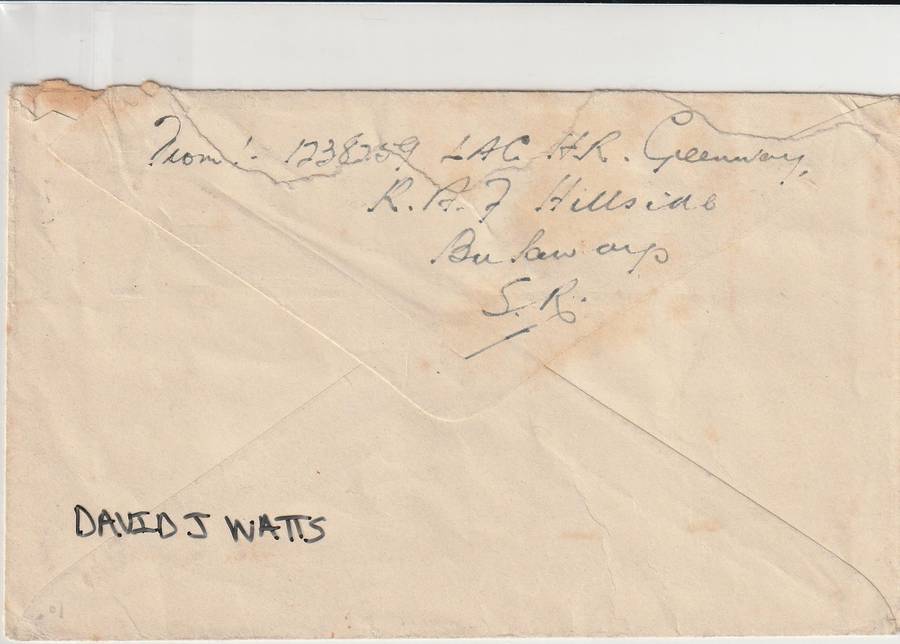 From:- 1238259 LAC H.R. Greenway,
R.A.F Hillside
Bulawayo
S.R.
DAVID J WATTS